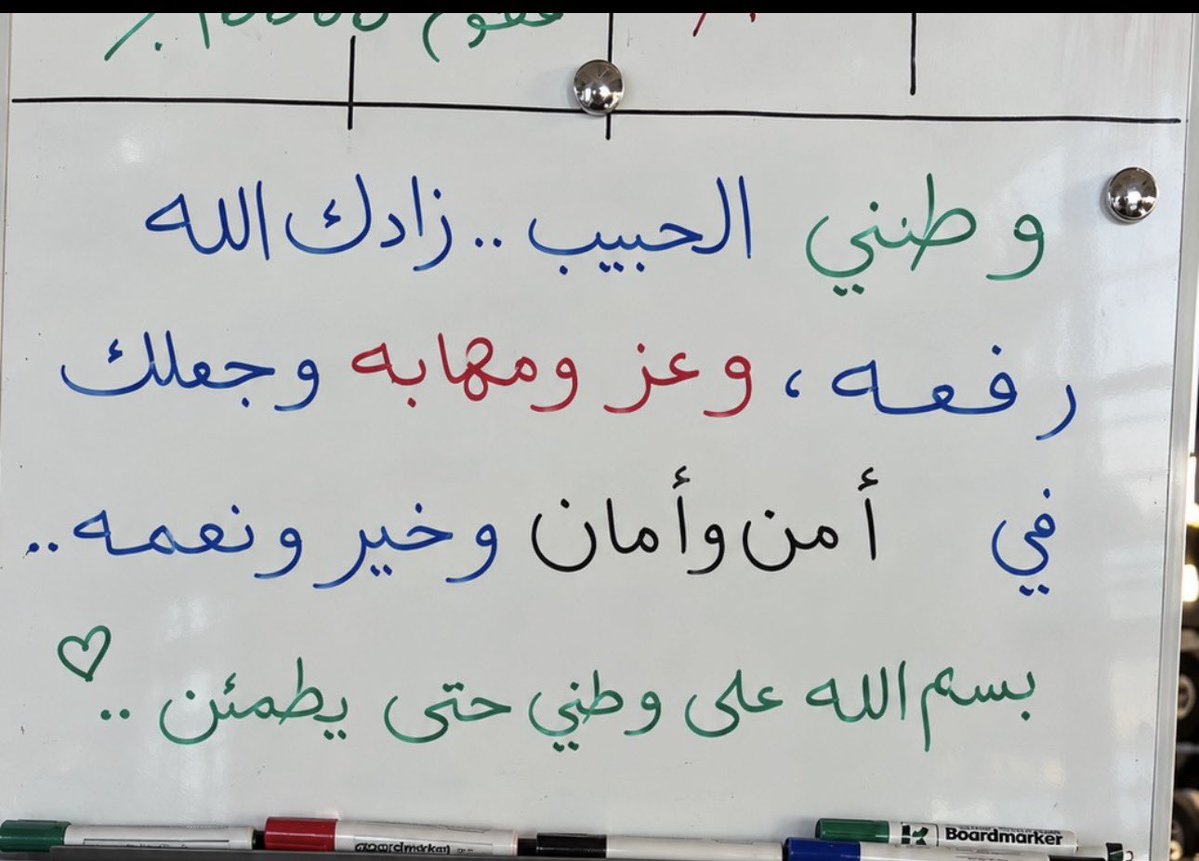 وطني الحبيب .. زادك الله
رفعه ، وعز ومهابه وجعلك
في أمن وأمان وخير ونعمه ..
بسم الله على وطني حتى يطمئن .. ♡
Boardmarker